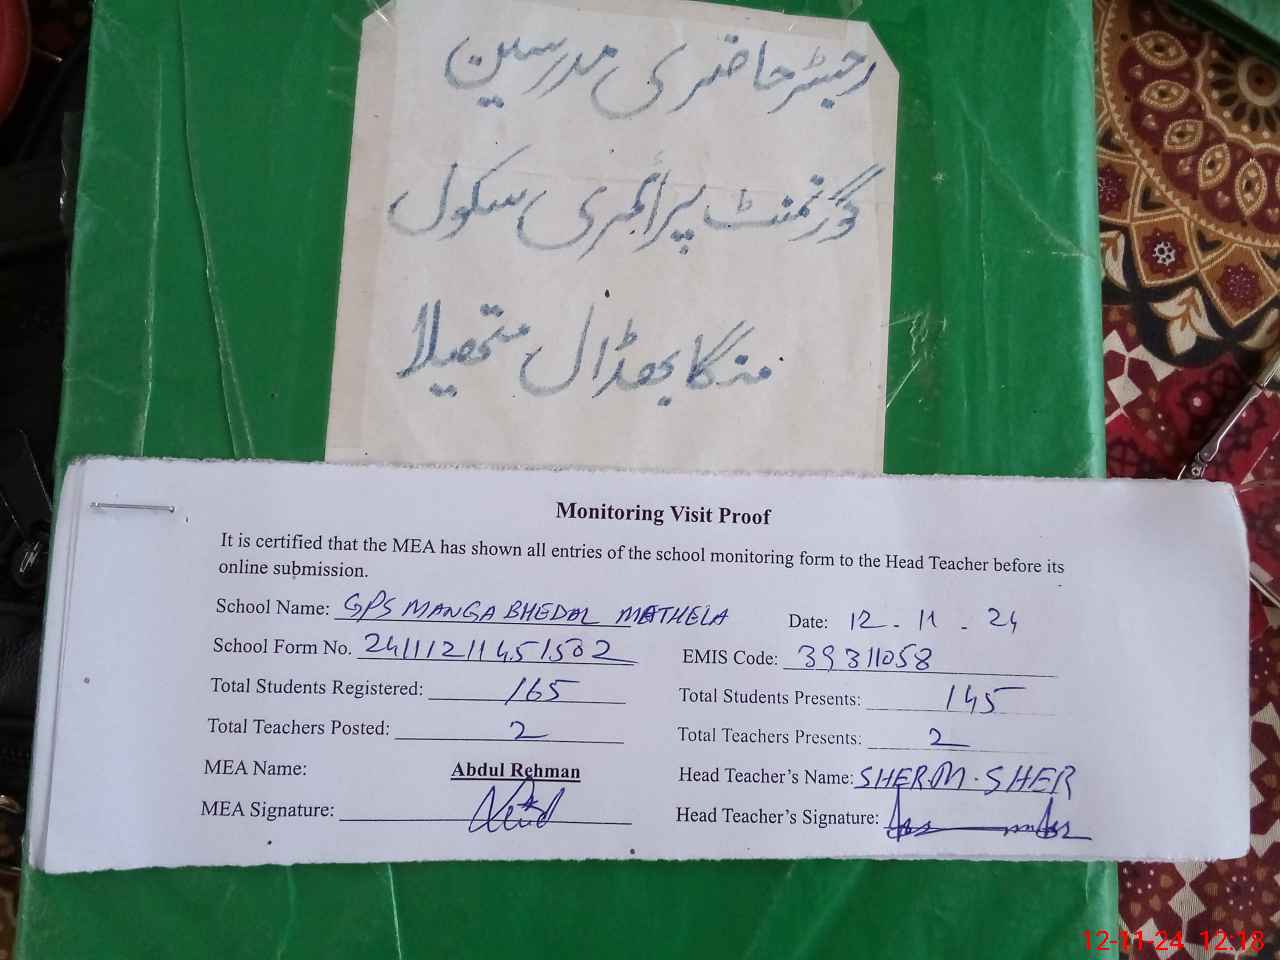 رجسٹر حاضری مدرسین
گورنمنٹ پرائمری سکول
منگا بھڈال متھیلا
Monitoring Visit Proof
It is certified that the MEA has shown all entries of the school monitoring form to the Head Teacher before its
online submission.
School Name: GPS MANGA BHEDAL MATHELA Date: 12-11-24
School Form No. 24111211451502 EMIS Code: 39311058
Total Students Registered: 165 Total Students Presents: 145
Total Teachers Posted: 2 Total Teachers Presents: 2
MEA Name: Abdul Rehman Head Teacher's Name: SHER.M.SHER
MEA Signature: Head Teacher's Signature:
12-11-24 12:18